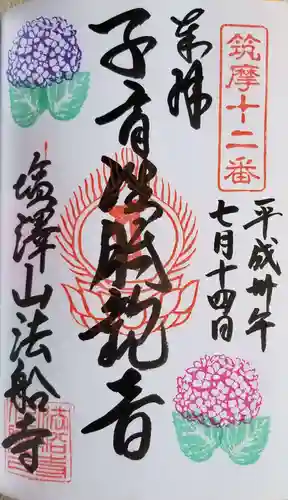 筑摩十二番
奉拝
平成卅年
七月十四日
子育聖観音
塩澤山法船寺